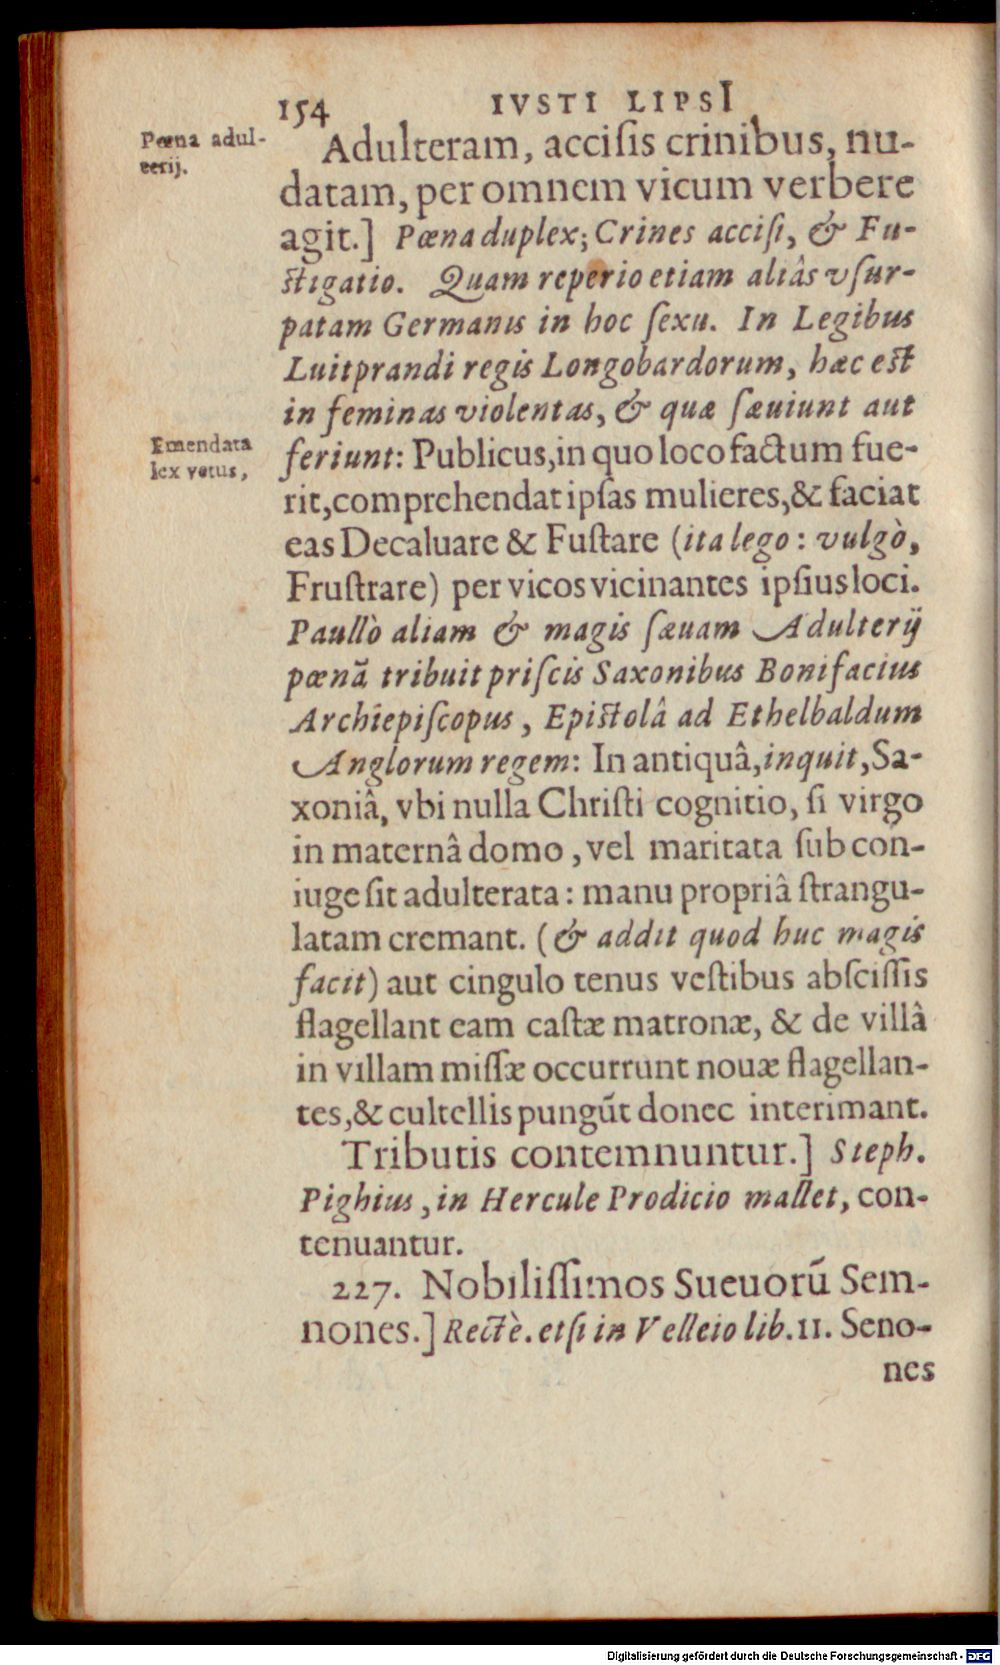 154 IVSTI LIPSI
Pœna adul-
terij.
Adulteram, acciſis crinibus, nu-
datam, per omnem vicum verbere
agit.] Pœna duplex; Crines acciſi, & Fu-
ſtigatio. Quam reperio etiam aliâs vſur-
patam Germanis in hoc ſexu. In Legibus
Luitprandi regis Longobardorum, hæc eſt
in feminas violentas, & quæ ſæuiunt aut
Emendata
lex vetus,
feriunt: Publicus, in quo loco factum fue-
rit, comprehendat ipſas mulieres, & faciat
eas Decaluare & Fuſtare (ita lego: vulgò,
Fruſtrare) per vicos vicinantes ipſius loci.
Paullò aliam & magis ſæuam Adulterij
pœnã tribuit priſcis Saxonibus Bonifacius
Archiepiſcopus, Epiſtolâ ad Ethelbaldum
Anglorum regem: In antiquâ, inquit, Sa-
xoniâ, vbi nulla Chriſti cognitio, ſi virgo
in maternâ domo, vel maritata ſub con-
iuge ſit adulterata: manu propriâ ſtrangu-
latam cremant. (& addit quod huc magis
facit) aut cingulo tenus veſtibus abſciſſis
flagellant eam caſtæ matronæ, & de villâ
in villam miſſæ occurrunt nouæ flagellan-
tes, & cultellis pungũt donec interimant.
Tributis contemnuntur.] Steph.
Pighius, in Hercule Prodicio mallet, con-
tenuantur.
227. Nobiliſſimos Sueuorũ Sem-
nones.] Rectè. etſi in Velleio lib. II. Seno-
nes
Digitalisierung gefördert durch die Deutsche Forschungsgemeinschaft - DFG